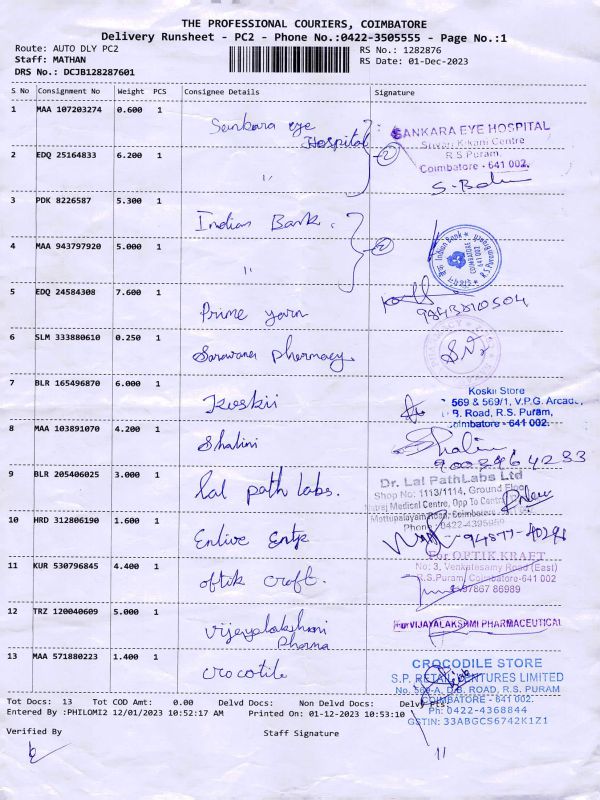 THE PROFESSIONAL COURIERS, COIMBATORE
Delivery Runsheet - PC2 - Phone No.:0422-3505555 - Page No.:1
Route: AUTO DLY PC2
Staff: MATHAN
DRS No.: DCJB128287601
RS No.: 1282876
RS Date: 01-Dec-2023
S No Consignment No Weight PCS Consignee Details Signature
1 MAA 107203274 0.600 1 Sankara eye Hospital
SANKARA EYE HOSPITAL
Sivan Kikani Centre
R.S Puram,
Coimbatore - 641 002.
2 EDQ 25164833 6.200 1 "
2
S. Bal
3 PDK 8226587 5.300 1 Indian Bank.
4 MAA 943797920 5.000 1 "
2
Indian Bank
COIMBATORE
641 002
R.S.Puram
5 EDQ 24584308 7.600 1 Prime yarn
6 SLM 333880610 0.250 1 Sarawana Pharmacy
7 BLR 165496870 6.000 1 Koskii
Koskii Store
569 & 569/1, V.P.G. Arcade,
D.B. Road, R.S. Puram,
Coimbatore - 641 002.
8 MAA 103891070 4.200 1 Shalini
Shalini
9 BLR 205406025 3.000 1 lal path labs.
Dr. Lal PathLabs Ltd
Shop No: 1113/1114, Ground Floor
Medical Centre, Opp To
Mettupalayam Road, Coimbatore
Phone : 0422-4395959
10 HRD 312806190 1.600 1 Enlive Entp
11 KUR 530796845 4.400 1 optik croft.
For OPTIK KRAFT
No: 3, Venkatesamy Road (East)
R.S.Puram, Coimbatore-641 002
97867 86989
12 TRZ 120040609 5.000 1 Vijayalakshmi Pharma
For VIJAYALAKSHMI PHARMACEUTICAL
13 MAA 571880223 1.400 1 Crocotile
CROCODILE STORE
S.P. RETAIL VENTURES LIMITED
No. 569-A, D.B. ROAD, R.S. PURAM
COIMBATORE - 641 002.
Ph: 0422-4368844
GSTIN: 33ABGCS6742K1Z1
Tot Docs: 13 Tot COD Amt: 0.00 Delvd Docs: Non Delvd Docs: Delvd Pts:
Entered By :PHILOMI2 12/01/2023 10:52:17 AM Printed On: 01-12-2023 10:53:10
Verified By Staff Signature